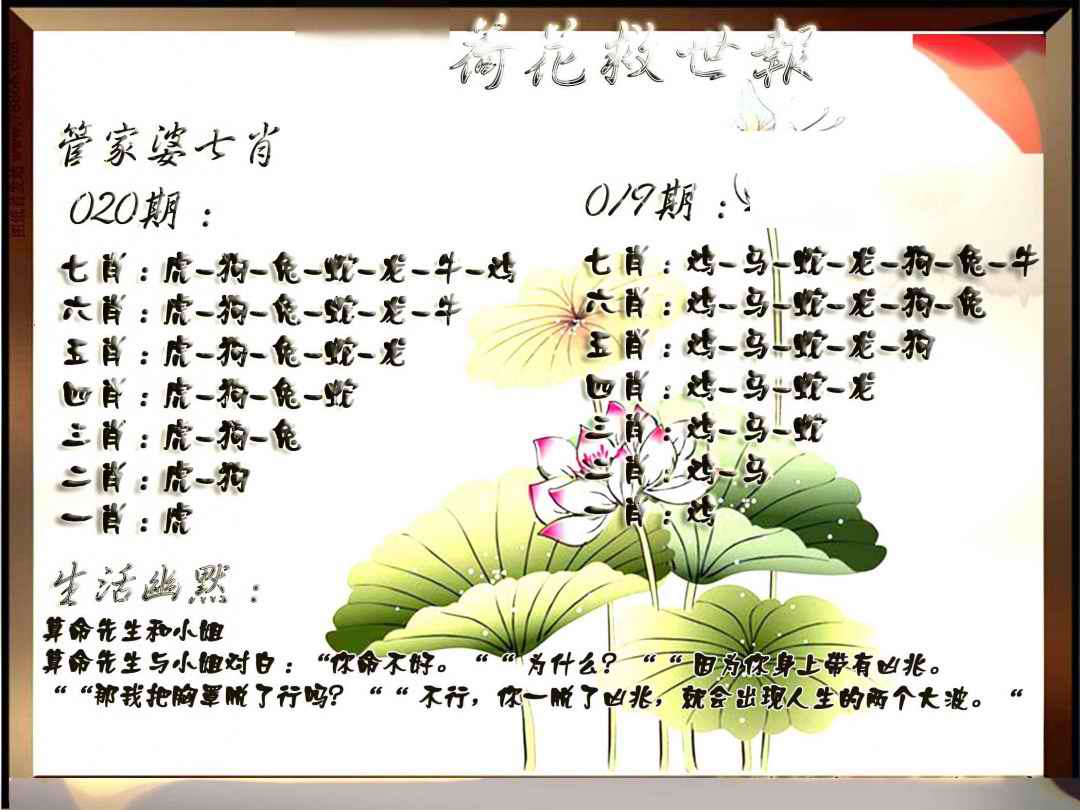 荷花救世報
管家婆七肖
020期：
七肖：虎-狗-兔-蛇-龙-牛-鸡
六肖：虎-狗-兔-蛇-龙-牛
五肖：虎-狗-兔-蛇-龙
四肖：虎-狗-兔-蛇
三肖：虎-狗-兔
二肖：虎-狗
一肖：虎
019期：
七肖：鸡-马-蛇-龙-狗-兔-牛
六肖：鸡-马-蛇-龙-狗-兔
五肖：鸡-马-蛇-龙-狗
四肖：鸡-马-蛇-龙
三肖：鸡-马-蛇
二肖：鸡-马
一肖：鸡
生活幽默：
算命先生和小姐
算命先生与小姐对白：“你命不好。““为什么？““因为你身上带有凶兆。
““那我把胸罩脱了行吗？““不行，你一脱了凶兆，就会出现人生的两个大波。“